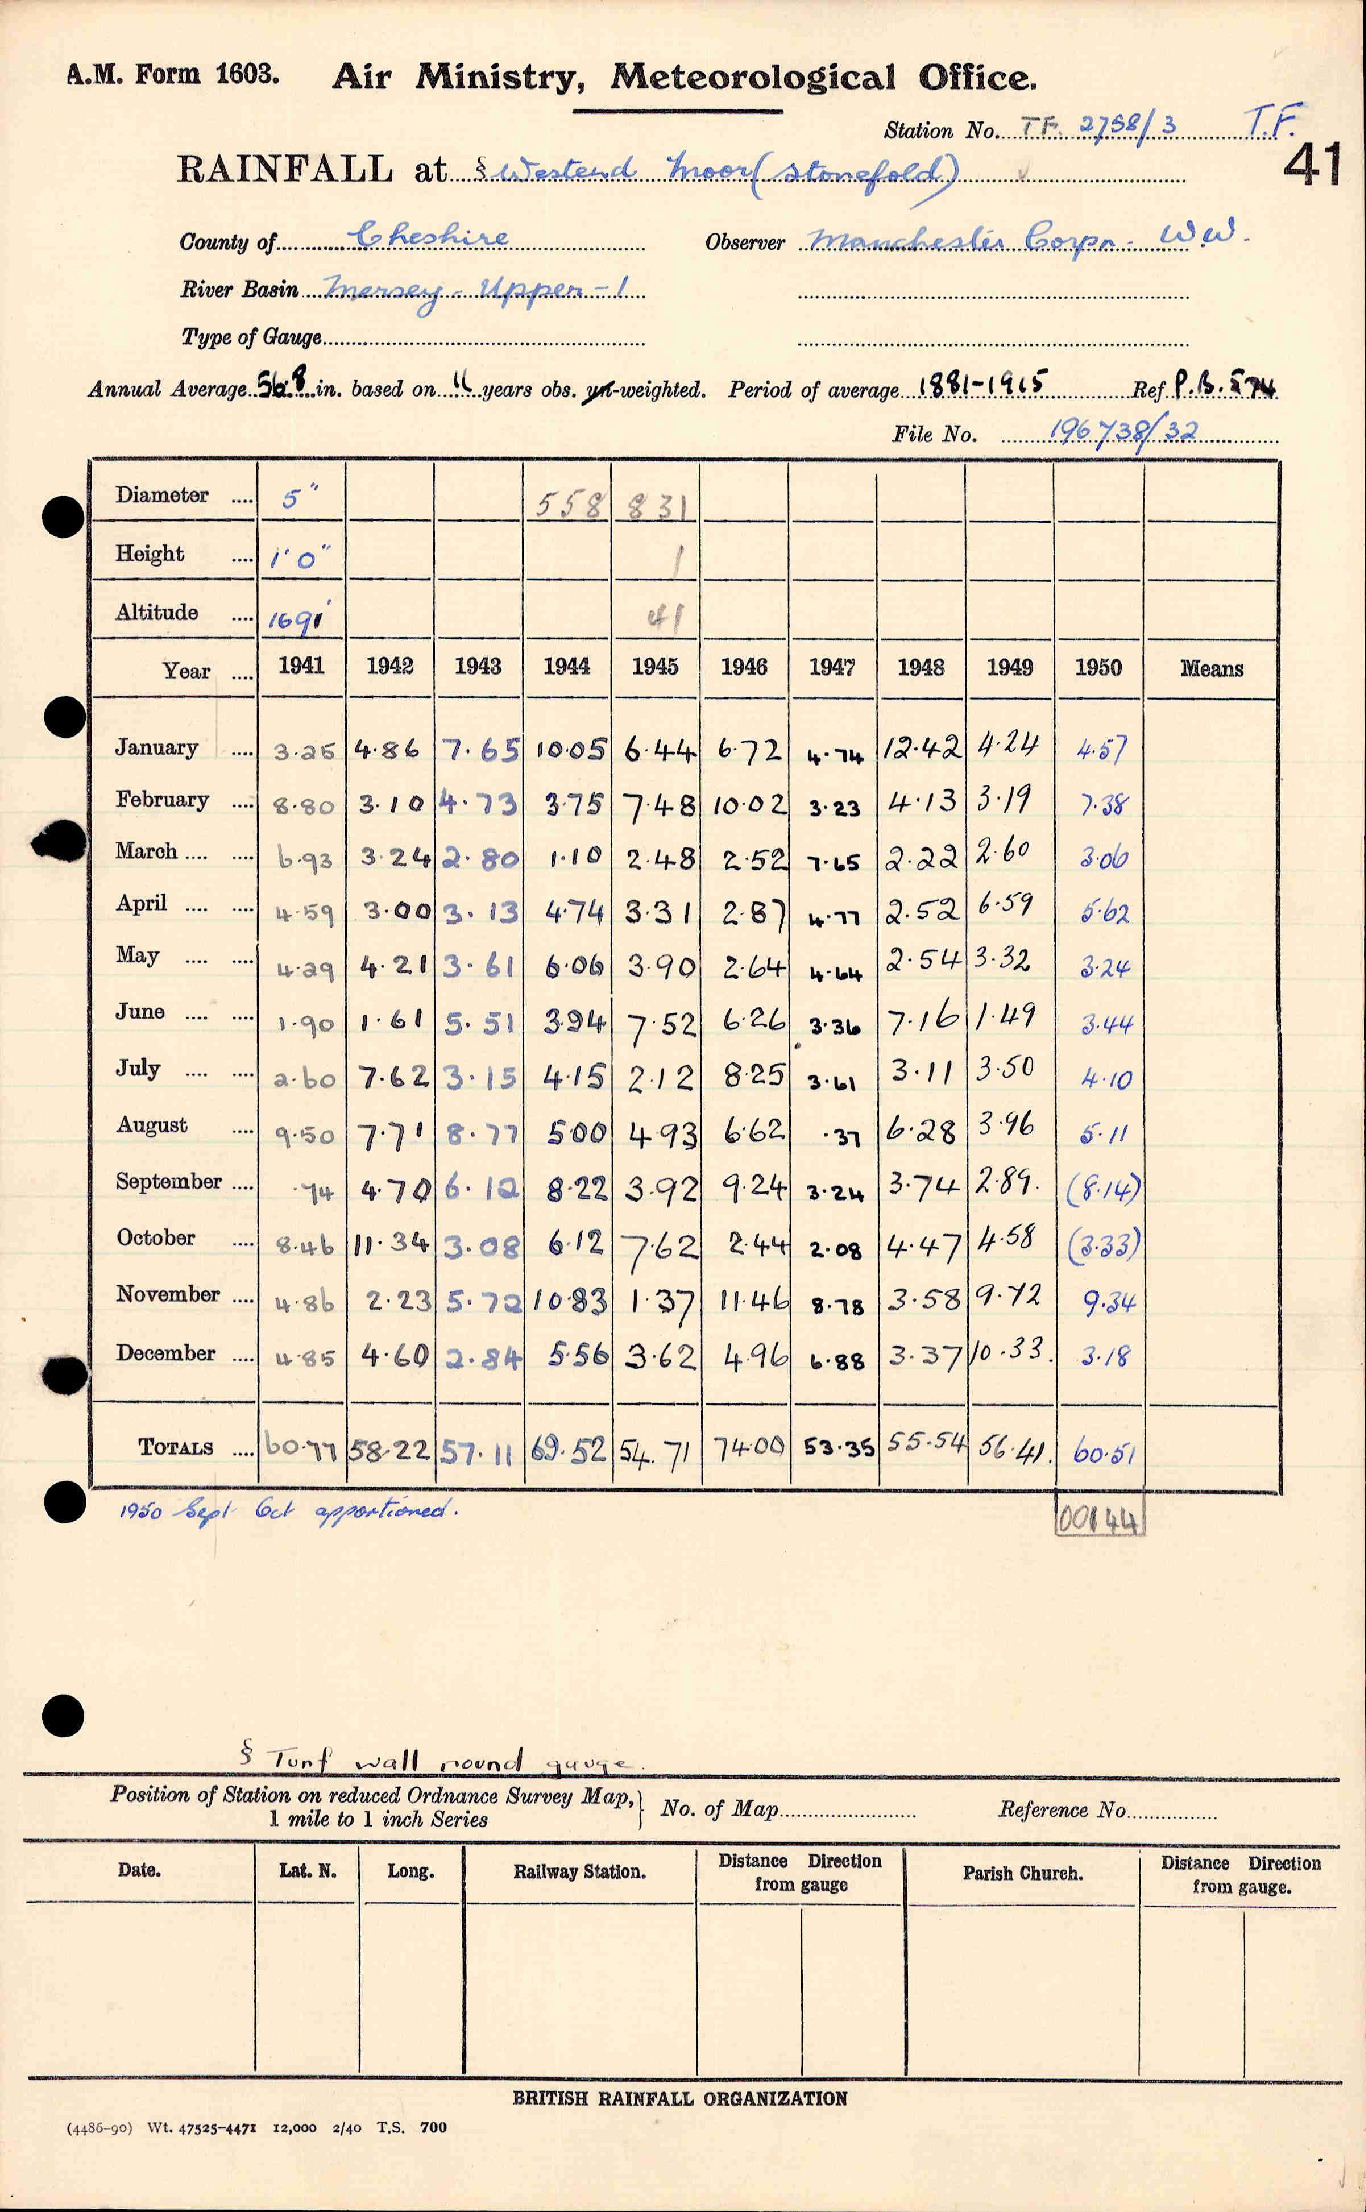 A.M. Form 1603. Air Ministry, Meteorological Office.
Station No. TF. 2758/3 T.F.
41
RAINFALL at § Westend Moor (Stonefold)
County of Cheshire Observer Manchester Corpn. W.W.
River Basin Mersey - Upper - 1
Type of Gauge
Annual Average 56.8 in. based on 11 years obs. un-weighted. Period of average 1881-1915 Ref P.B. 574
File No. 196738/32
Diameter .... 5" 558 831
Height .... 1'0" 1
Altitude .... 1691' 41
Year .... 1941 1942 1943 1944 1945 1946 1947 1948 1949 1950 Means
January .... 3.25 4.86 7.65 10.05 6.44 6.72 4.74 12.42 4.24 4.57
February .... 8.80 3.10 4.73 3.75 7.48 10.02 3.23 4.13 3.19 7.38
March .... .... 6.93 3.24 2.80 1.10 2.48 2.52 7.65 2.22 2.60 3.06
April .... .... 4.59 3.00 3.13 4.74 3.31 2.87 4.77 2.52 6.59 5.62
May .... .... 4.29 4.21 3.61 6.06 3.90 2.64 4.64 2.54 3.32 3.24
June .... .... 1.90 1.61 5.51 3.94 7.52 6.26 3.36 7.16 1.49 3.44
July .... .... 2.60 7.62 3.15 4.15 2.12 8.25 3.61 3.11 3.50 4.10
August .... 9.50 7.71 8.77 5.00 4.93 6.62 .37 6.28 3.96 5.11
September .... .74 4.70 6.12 8.22 3.92 9.24 3.24 3.74 2.89. (8.14)
October .... 8.46 11.34 3.08 6.12 7.62 2.44 2.08 4.47 4.58 (3.33)
November .... 4.86 2.23 5.72 10.83 1.37 11.46 8.78 3.58 9.72 9.34
December .... 4.85 4.60 2.84 5.56 3.62 4.96 6.88 3.37 10.33. 3.18
TOTALS .... 60.77 58.22 57.11 69.52 54.71 74.00 53.35 55.54 56.41. 60.51
1950 Sept Oct apportioned.
00144
§ Turf wall round gauge.
Position of Station on reduced Ordnance Survey Map,} No. of Map Reference No.
1 mile to 1 inch Series
Date. Lat. N. Long. Railway Station. Distance Direction from gauge Parish Church. Distance Direction from gauge.
BRITISH RAINFALL ORGANIZATION
(4486-90) Wt. 47525-4471 12,000 2/40 T.S. 700